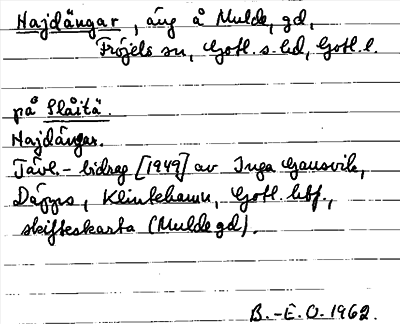 Hajdängar, äng å Mulde, gd,
Fröjels sn, Gotl. s. hd, Gotl. l.
på Slåitä.
Hajdängar.
Tävl.-bidrag [1949] av Inga Gansvik,
Däpps, Klintehamn, Gotl. hbf.,
skifteskarta (Mulde gd).
B.-E.O. 1962.